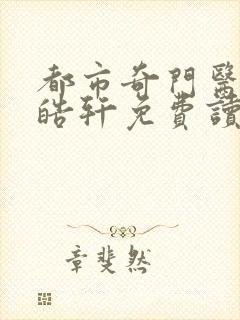 都市奇門醫
皓軒免費讀
章斐然